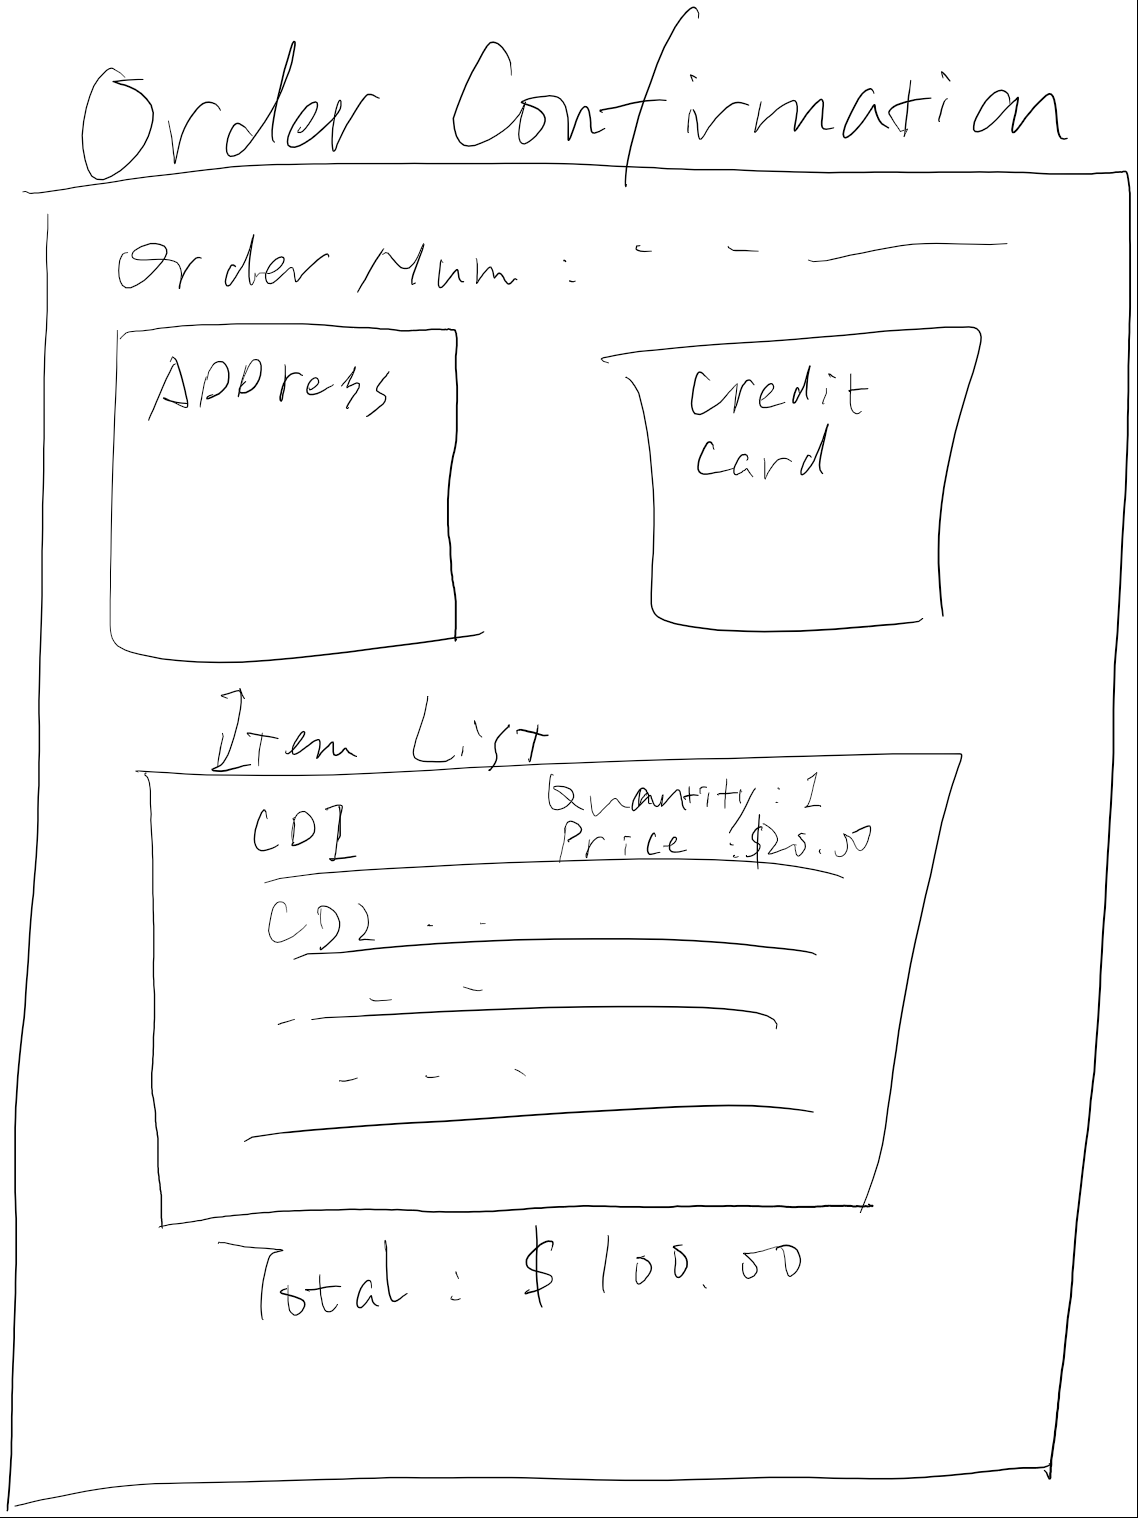 Order Confirmation
Order Num :
ADDress
Credit
Card
Item List
CD1
Quantity : 1
Price : $20.00
CD2
Total : $ 100.00